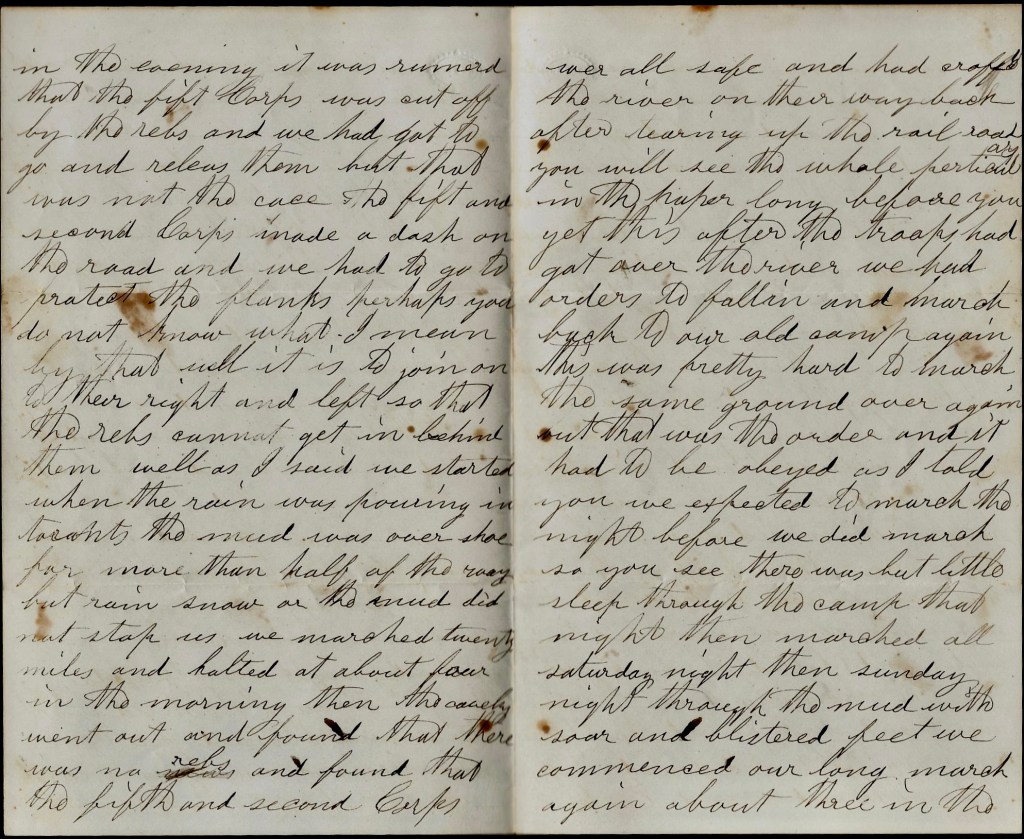 in the evening it was rumerd
that the fift Corps was cut off
by the rebs and we had got to
go and releas them but that
was not the cace the fift and
second Corps made a dash on
the road and we had to go to
protect the flanks perhaps you
do not know what I mean
by that well it is to join on
to their right and left so that
the rebs cannat get in behind
them well as I said we started
when the rain was pouring in
the mud was over shoe
for more than half of the way
but rain snow or the mud did
not stop us we marched twenty
miles and halted at about four
in the morning then the cavelry
went out and found that there
was no rebs and found that
the fifth and second Corps
wer all safe and had crossed
the river on their way back
after tearing up the rail road
you will see the whole perticulary
in the paper long before you
get this after the troops had
got over the river we had
orders to fallin and march
back to our old camp again
this was pretty hard to march
the same ground over again
but that was the order and it
had to be obeyed as I told
you we expected to march the
night before we did march
so you see there was but little
sleep through the camp that
night then marched all
saturday night then sunday
night through the mud with
soar and blistered feet we
commenced our long march
again about three in the